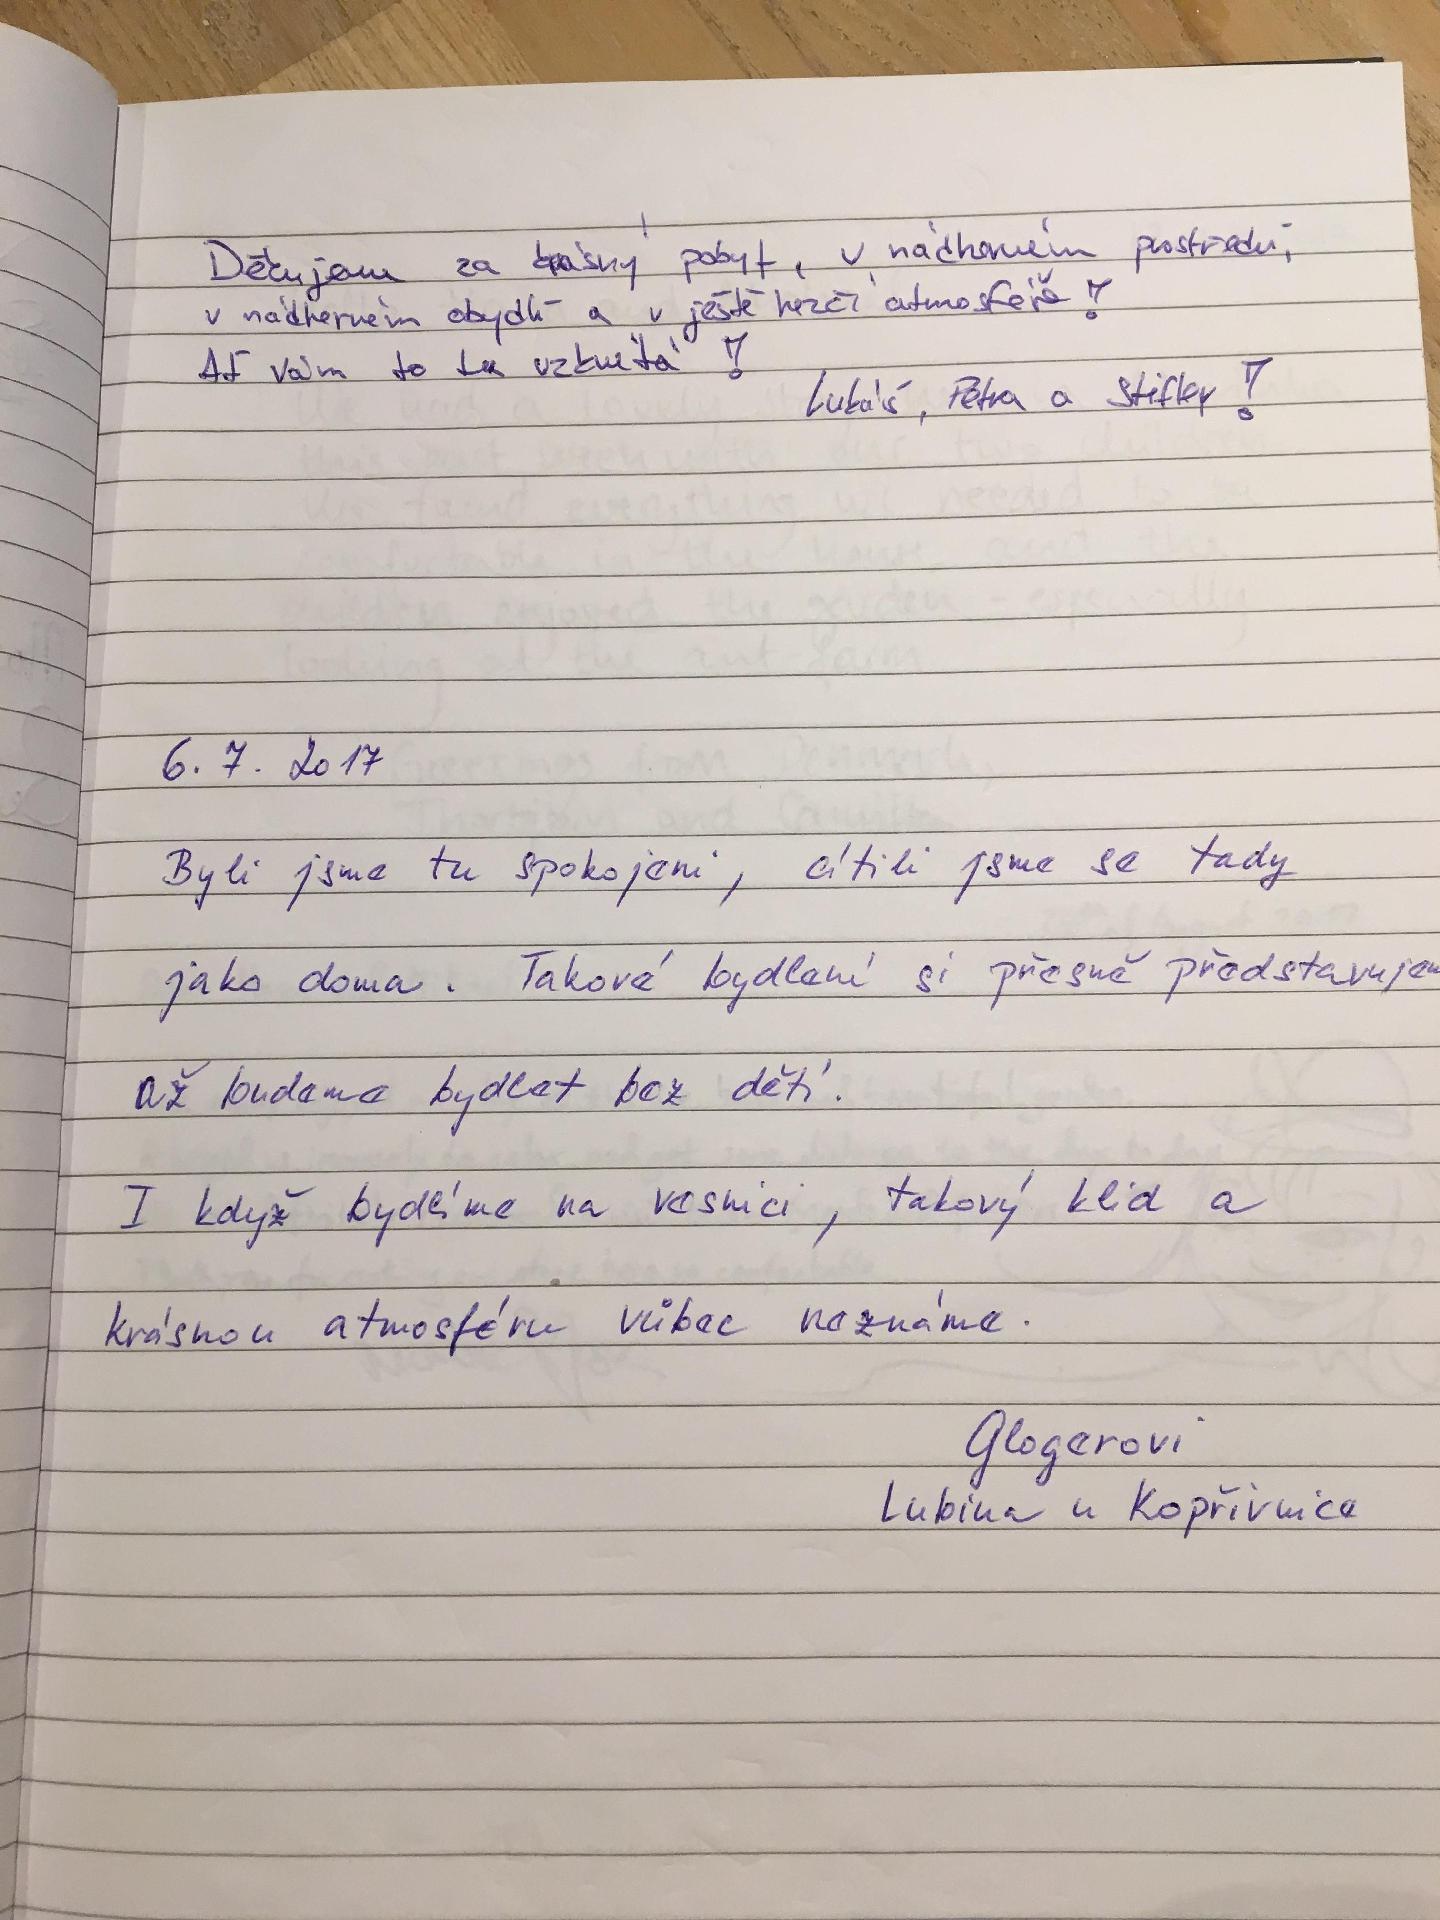 Děkujem za krásný pobyt, v nádherném prostředí,
v nádherném obydlí a v ještě hezčí atmosféře!
Ať vám to tu vzkvétá!
Lukáš, Petra a Stifley!
6. 7. 2017
Byli jsme tu spokojeni, cítili jsme se tady
jako doma. Takové bydlení si přesně představujem
až budeme bydlet bez dětí.
I když bydlíme na vesnici, takový klid a
krásnou atmosféru vůbec neznáme.
Glogerovi
Lubina u Kopřivnice